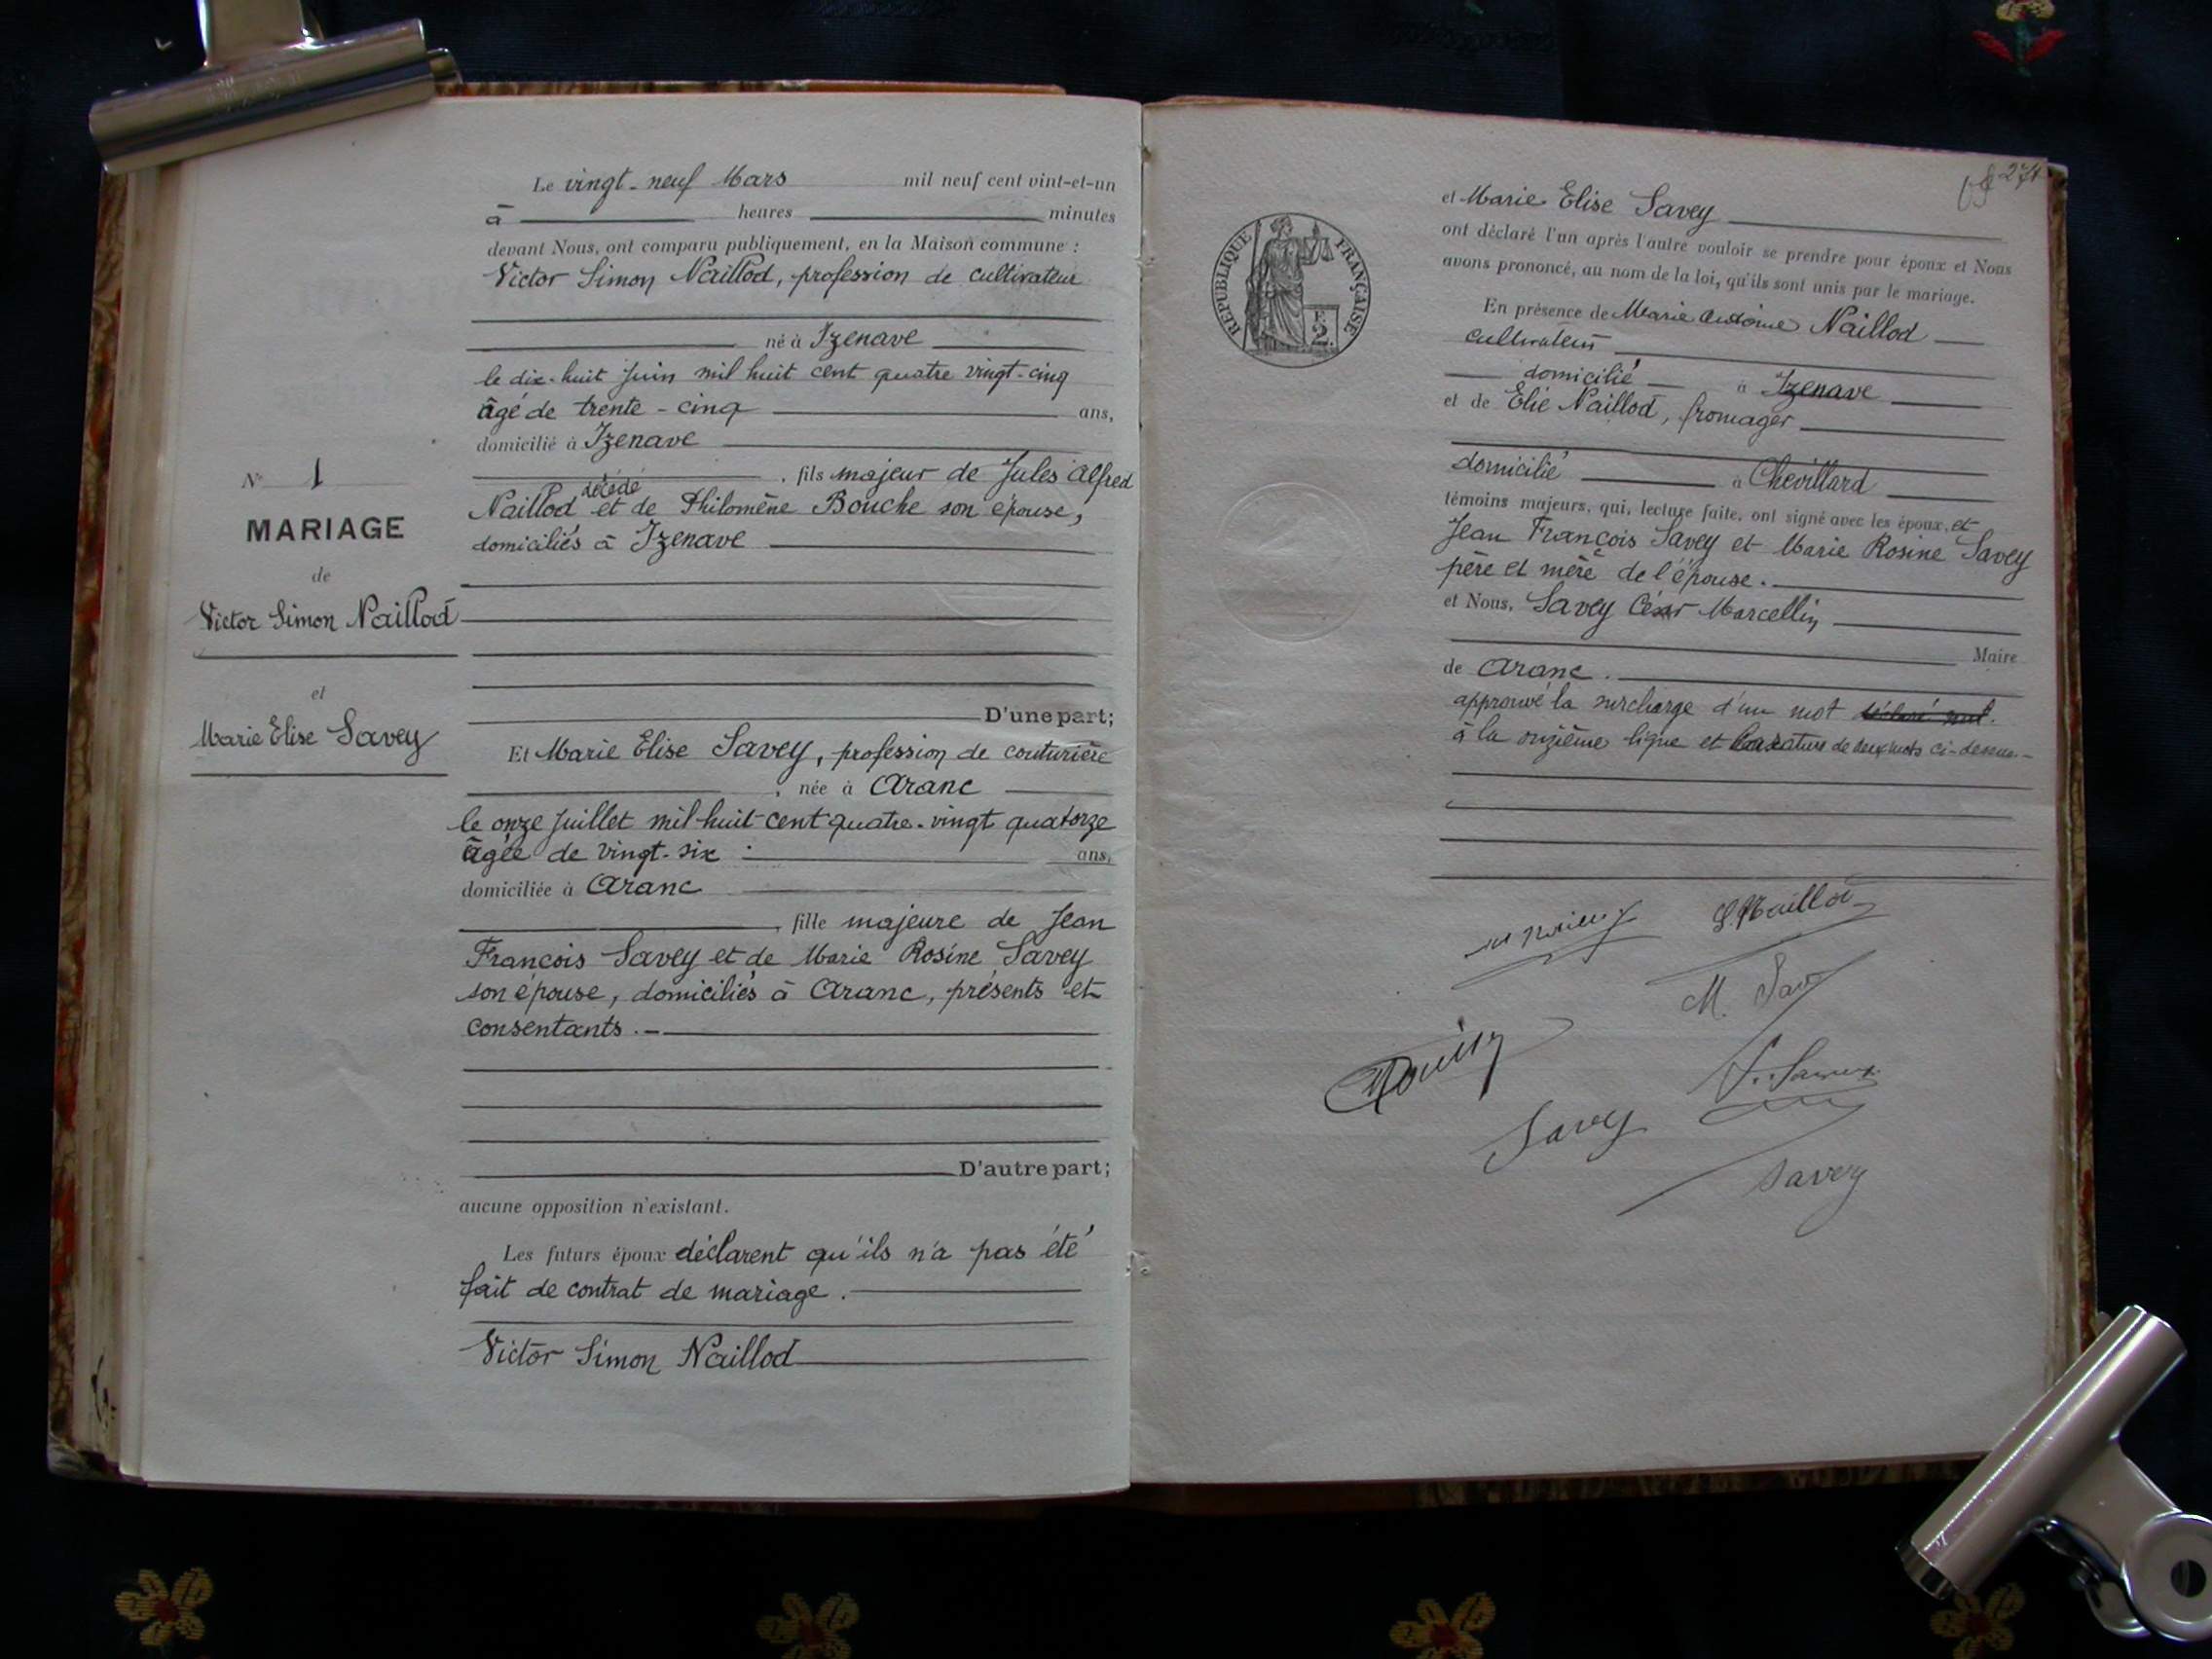 Le vingt-neuf Mars mil neuf cent vint-et-un
à heures minutes
devant Nous, ont comparu publiquement, en la Maison commune :
Victor Simon Naillod, profession de cultivateur
né à Izenave
le dix-huit Juin mil huit cent quatre vingt-cinq
âgé de trente-cinq ans,
domicilié à Izenave
, fils majeur de Jules Alfred
décédé
Naillod et de Philomène Bouche son épouse,
domiciliés à Izenave
D'une part;
Et Marie Elise Savey, profession de couturière
, née à Aranc
le onze Juillet mil huit cent quatre-vingt quatorze
âgée de vingt-six ans,
domiciliée à Aranc
, fille majeure de Jean
François Savey et de Marie Rosine Savey
son épouse, domiciliés à Aranc, présents et
consentants.
D'autre part;
aucune opposition n'existant.
Les futurs époux déclarent qu'ils n'a pas été
fait de contrat de mariage.
Victor Simon Naillod
N° 1
MARIAGE
de
Victor Simon Naillod
et
Marie Elise Savey
274
RÉPUBLIQUE FRANÇAISE
et Marie Elise Savey
ont déclaré l'un après l'autre vouloir se prendre pour époux et Nous
avons prononcé, au nom de la loi, qu'ils sont unis par le mariage.
En présence de Marie Antoine Naillod
cultivateur
domicilié à Izenave
et de Elie Naillod, fromager
domicilié à Chevillard
témoins majeurs, qui, lecture faite, ont signé avec les époux, et
Jean François Savey et Marie Rosine Savey
père et mère de l'épouse.
et Nous, Savey César Marcellin
Maire
de Aranc.
approuvé la surcharge d'un mot
à la onzième ligne et la rature de deux mots ci-dessus.
M. Savey
Savey
Savey